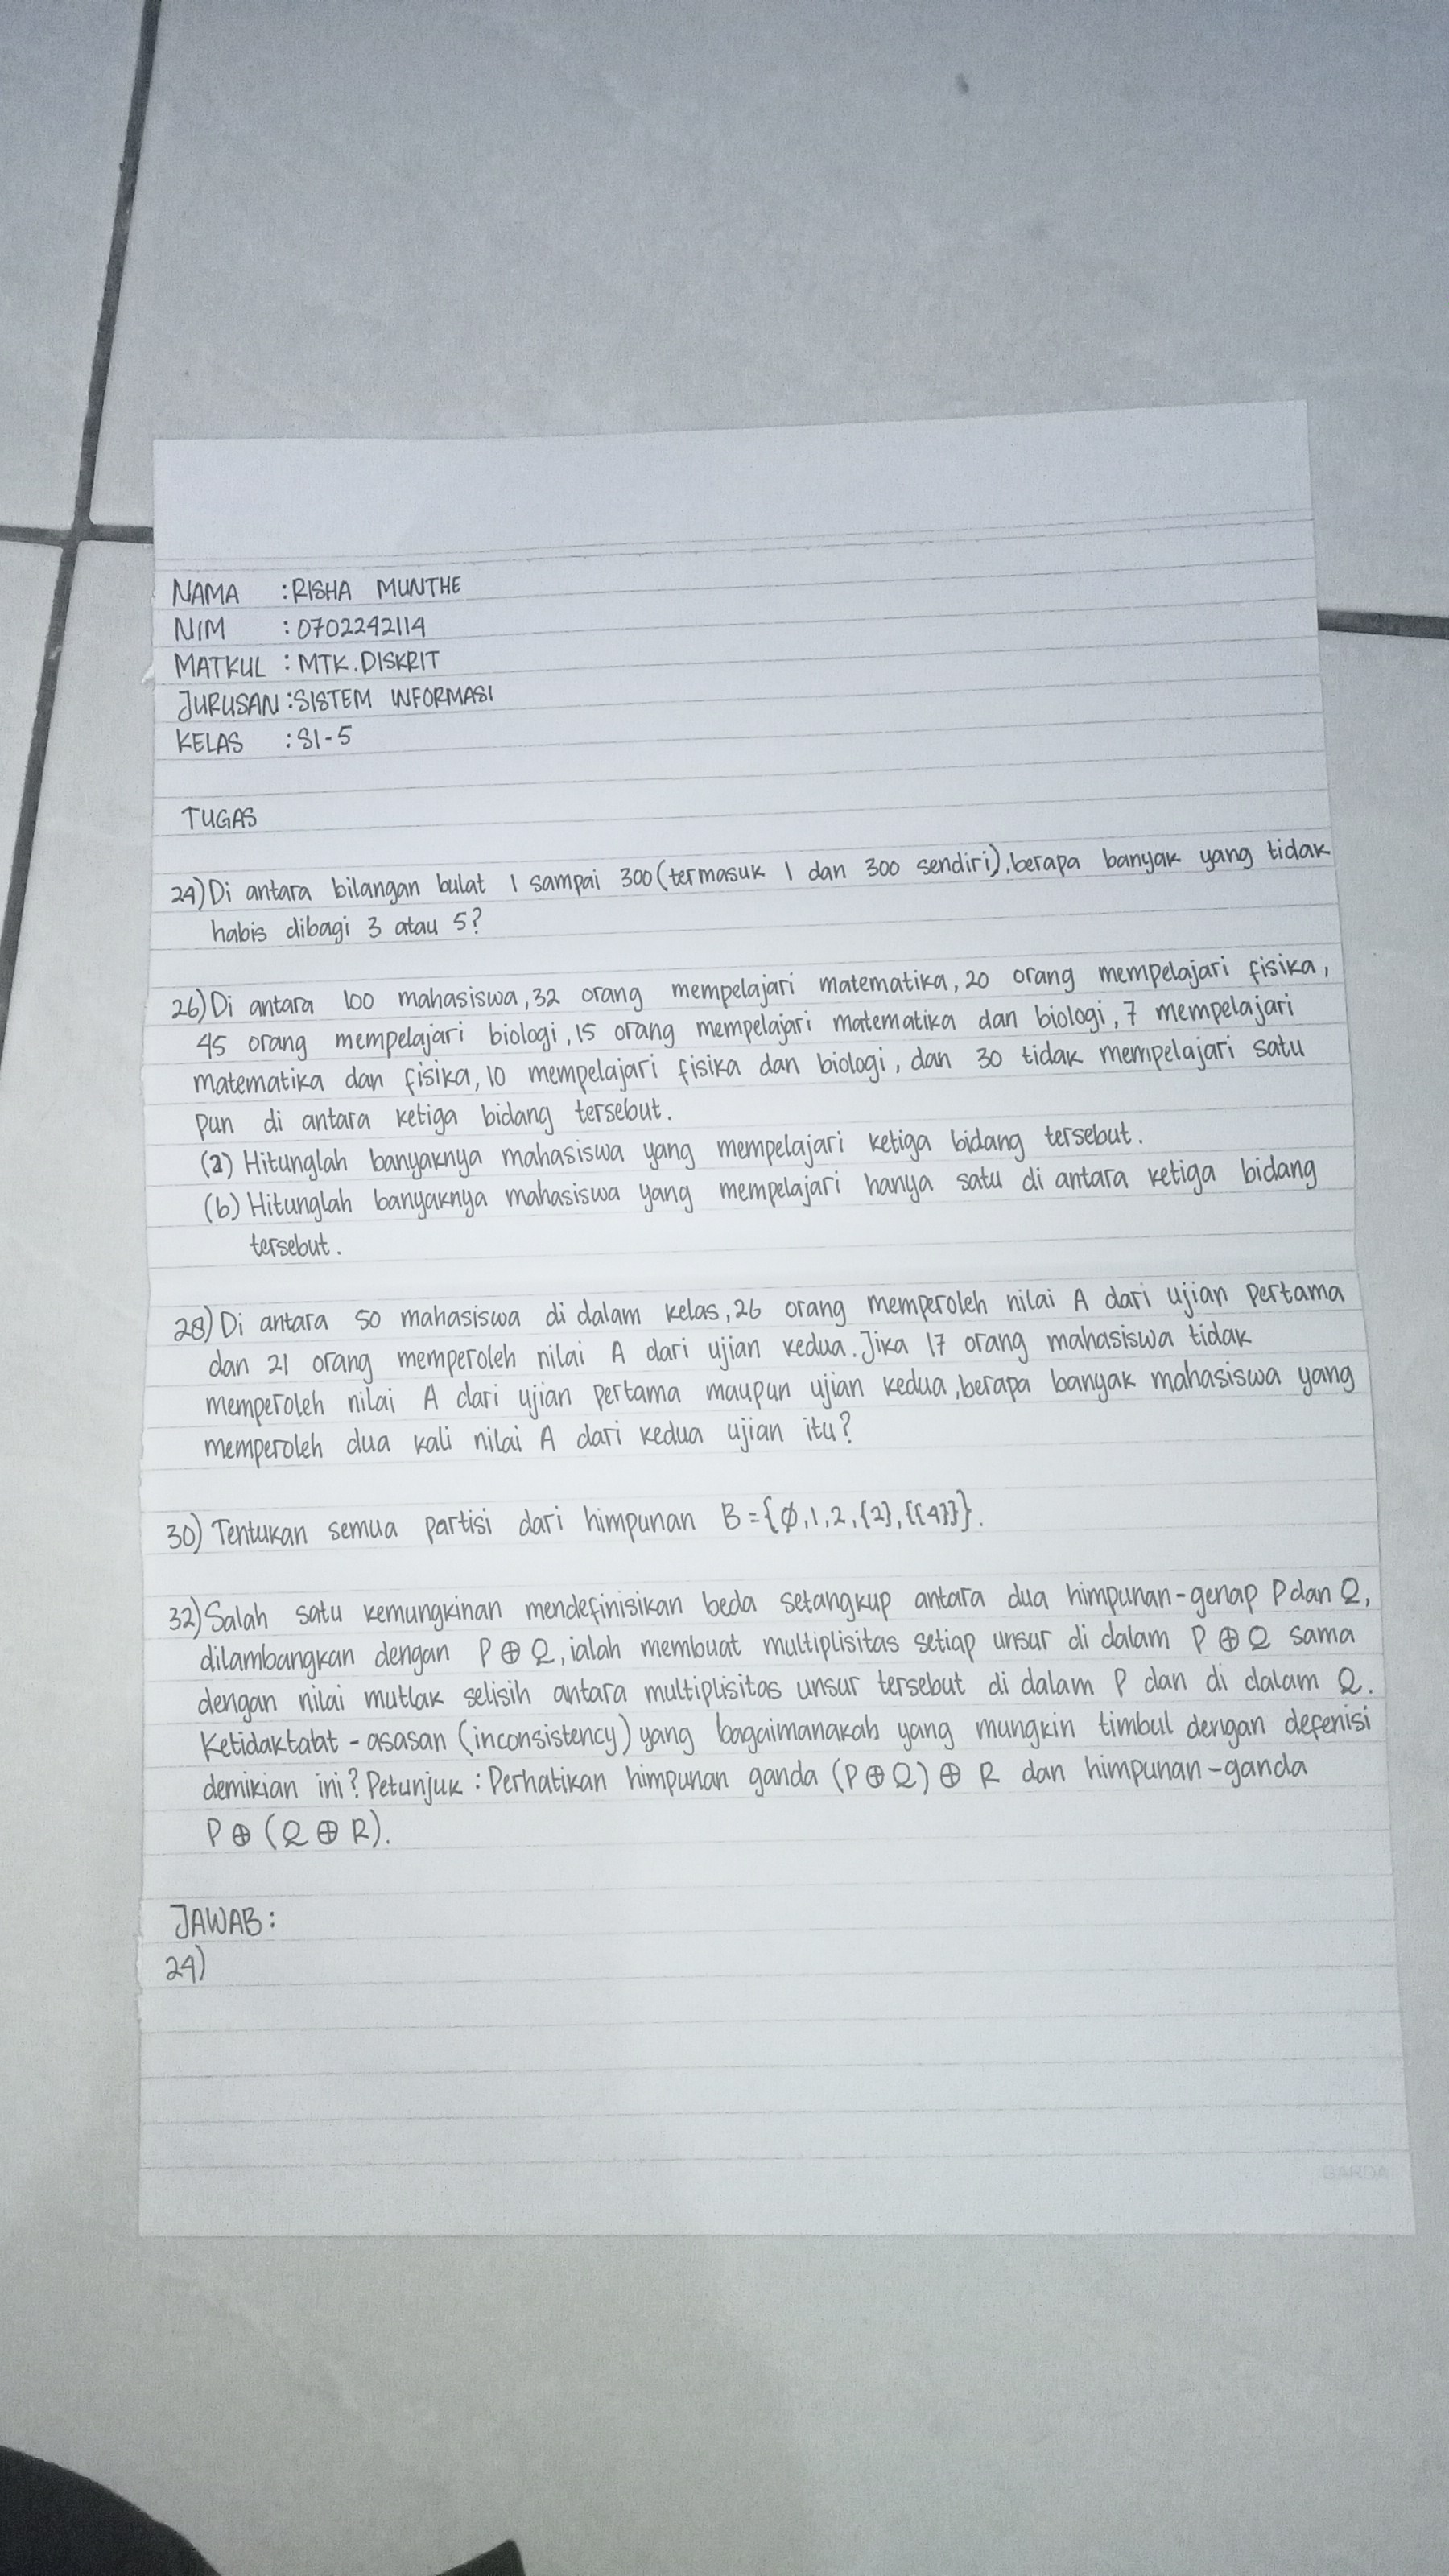 NAMA : RISHA MUNTHE
NIM : 0702242114
MATKUL : MTK. DISKRIT
JURUSAN : SISTEM INFORMASI
KELAS : SI-5
TUGAS
24) Di antara bilangan bulat 1 sampai 300 (termasuk 1 dan 300 sendiri), berapa banyak yang tidak
habis dibagi 3 atau 5?
26) Di antara 100 mahasiswa, 32 orang mempelajari matematika, 20 orang mempelajari fisika,
45 orang mempelajari biologi, 15 orang mempelajari matematika dan biologi, 7 mempelajari
matematika dan fisika, 10 mempelajari fisika dan biologi, dan 30 tidak mempelajari satu
pun di antara ketiga bidang tersebut.
(a) Hitunglah banyaknya mahasiswa yang mempelajari ketiga bidang tersebut.
(b) Hitunglah banyaknya mahasiswa yang mempelajari hanya satu di antara ketiga bidang
tersebut.
28) Di antara 50 mahasiswa di dalam kelas, 26 orang memperoleh nilai A dari ujian pertama
dan 21 orang memperoleh nilai A dari ujian kedua. Jika 17 orang mahasiswa tidak
memperoleh nilai A dari ujian pertama maupun ujian kedua, berapa banyak mahasiswa yang
memperoleh dua kali nilai A dari kedua ujian itu?
30) Tentukan semua partisi dari himpunan B = {∅, 1, 2, {2}, {{4}}}.
32) Salah satu kemungkinan mendefinisikan beda setangkup antara dua himpunan-genap P dan Q,
dilambangkan dengan P ⊕ Q, ialah membuat multiplisitas setiap unsur di dalam P ⊕ Q sama
dengan nilai mutlak selisih antara multiplisitas unsur tersebut di dalam P dan di dalam Q.
Ketidaktaat-asasan (inconsistency) yang bagaimanakah yang mungkin timbul dengan defenisi
demikian ini? Petunjuk : Perhatikan himpunan ganda (P ⊕ Q) ⊕ R dan himpunan-ganda
P ⊕ (Q ⊕ R).
JAWAB :
24)
GARDA